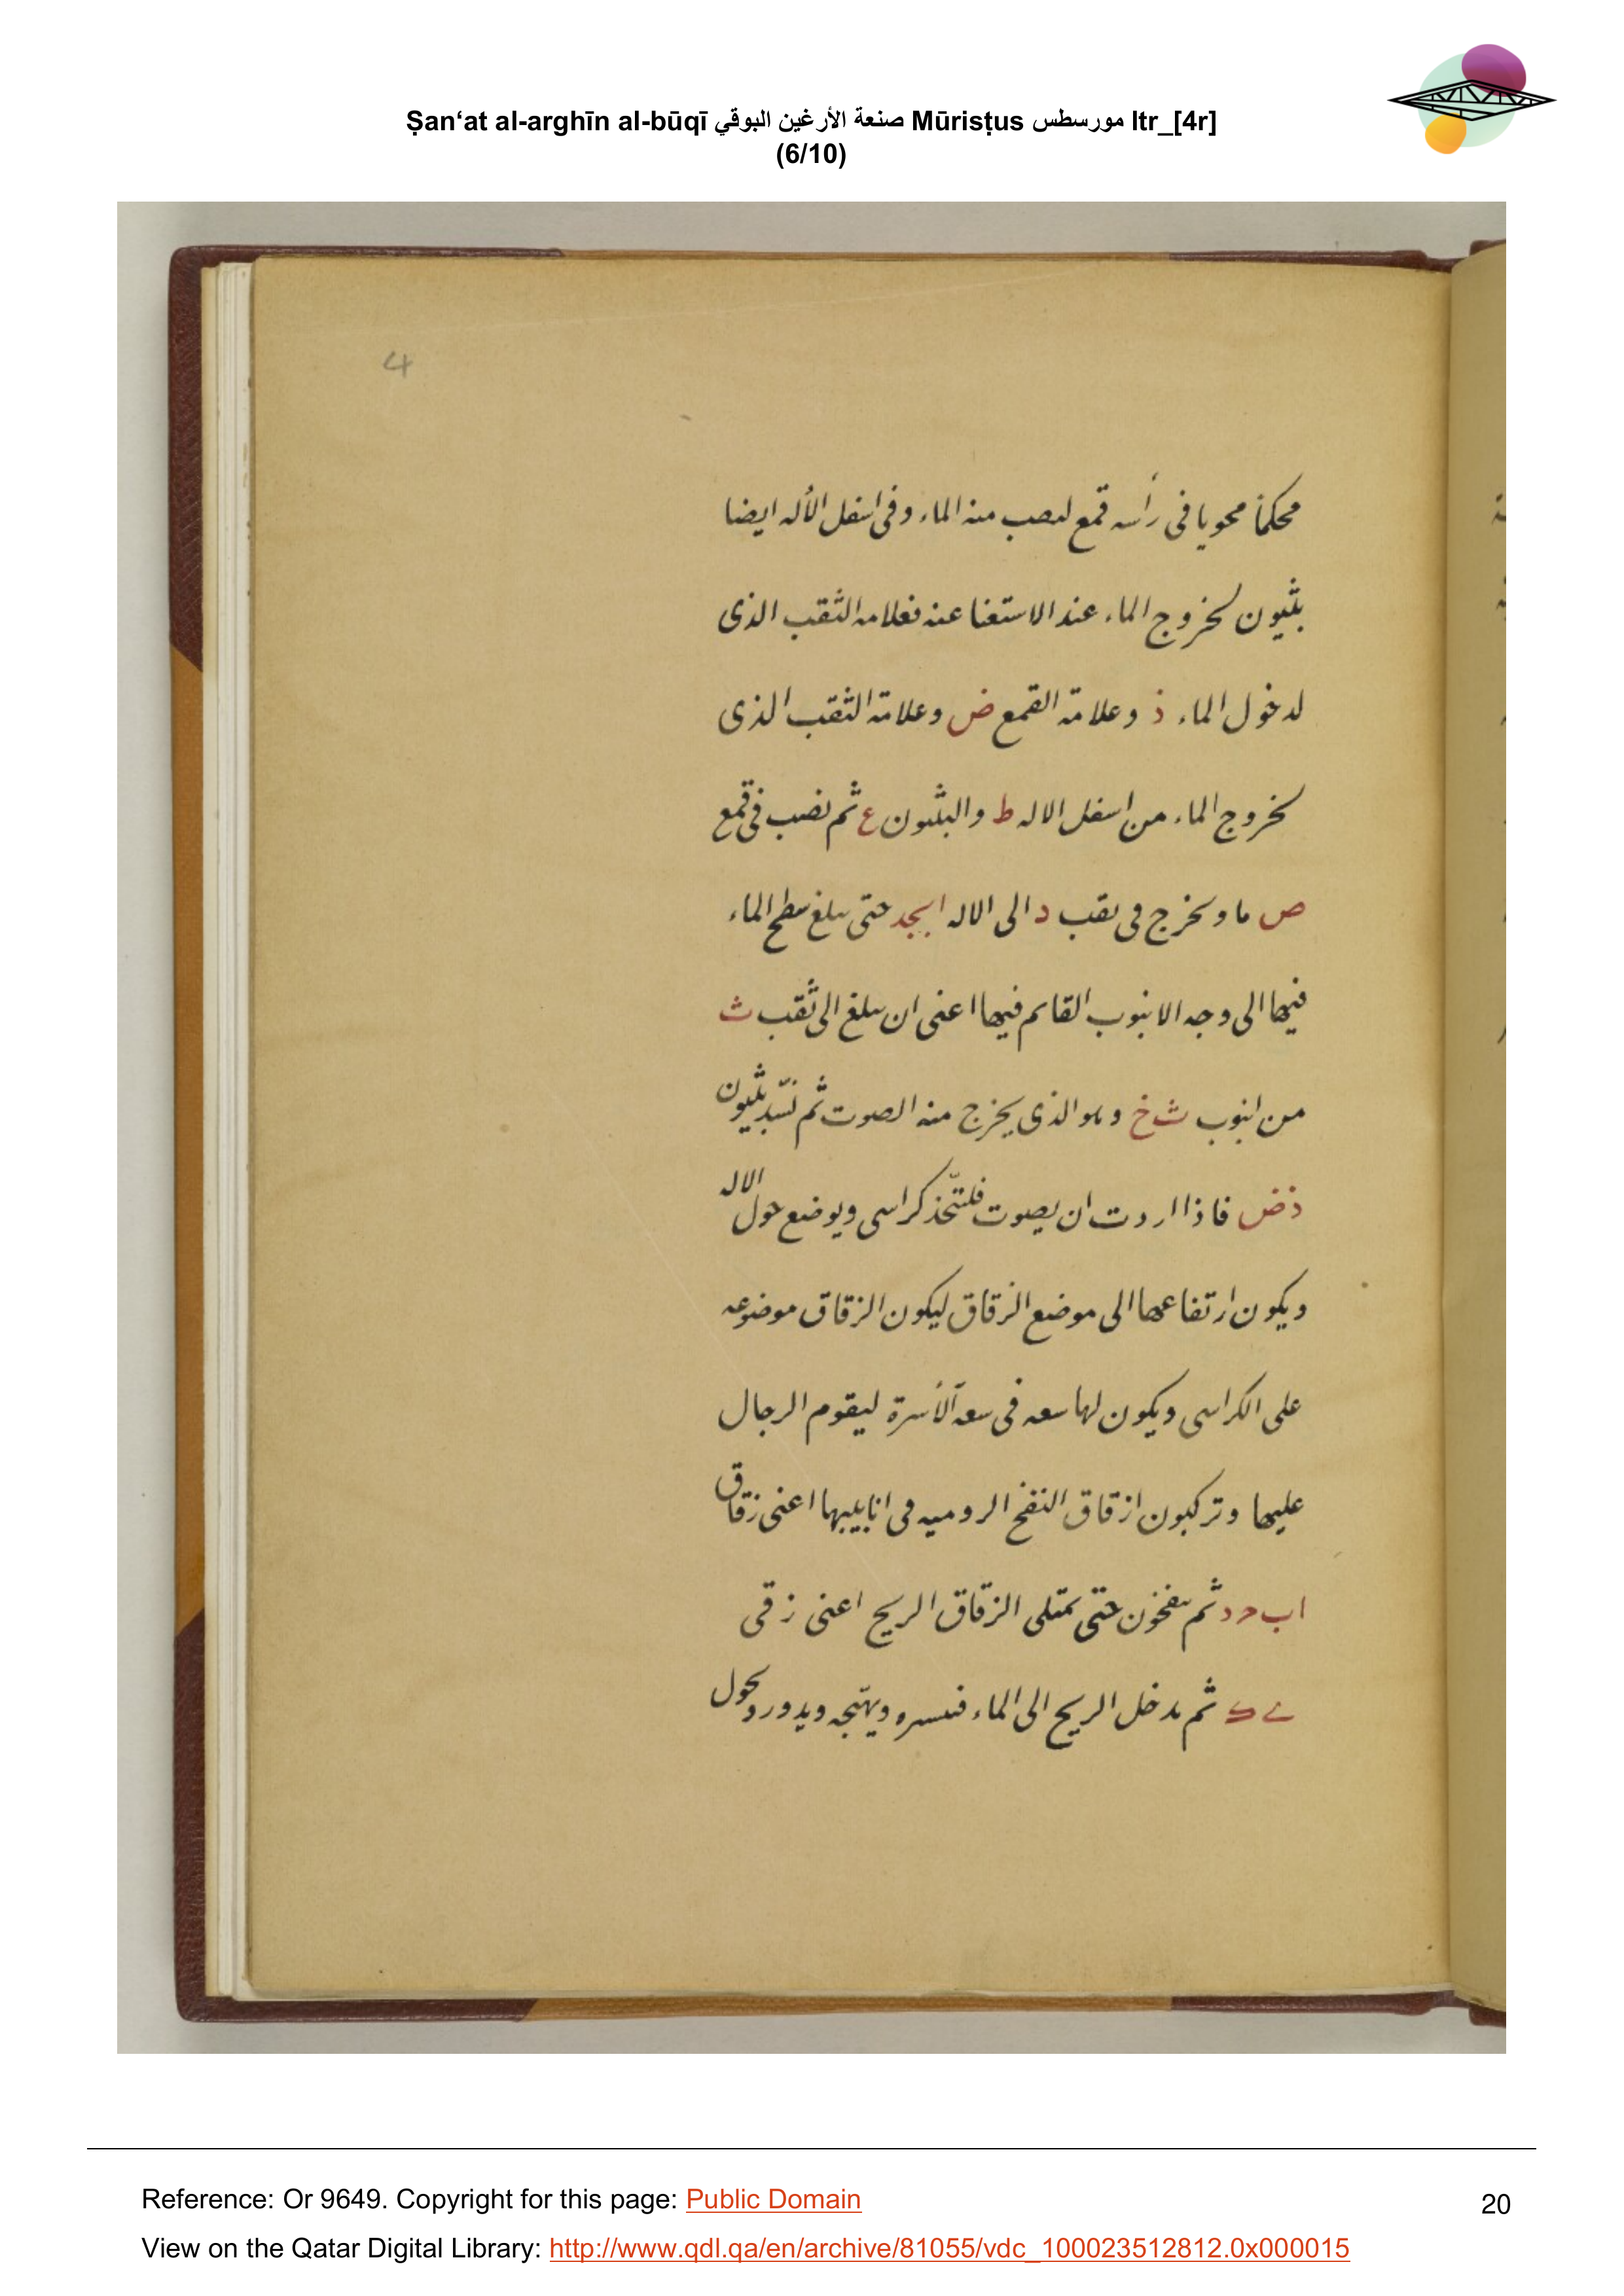 Ṣan‘at al-arghīn al-būqī صنعة الأرغين البوقي Mūrisṭus مورسطس ltr_[4r]
(6/10)
4
محكماً محويا فى رأسه قمع لىصب منه الماء وفى اسفل الأله ايضا
بثيون لخروج الماء عند الاستغنا عنه فعلامه الثقب الذى
لدخول الماء ذ وعلامة القمع ض وعلامة الثقب الذى
لخروج الماء من اسفل الاله ط والبثيون ع ثم نصب فى قمع
ص ما ويخرج فى ىقب د الى الاله ابجد حتى ىبلغ سطح الماء
فيها الى وجه الانبوب القايم فيها اعنى ان ىبلغ الى ثقب ث
من انبوب ث خ وهو الذى يخرج منه الصوت ثم نسّد بثيون
ذض فاذا اردت ان يصوت فلتتّخذ كراسى ويوضع حول الاله
ويكون ارتفاعها الى موضع الزقاق ليكون الزقاق موضوعه
على الكراسى ويكون لها سعه فى سعة الأسرة ليقوم الرجال
عليها وتركبون ازقاق النفخ الروميه فى انابيبها اعنى زقاق
اب حد ثم ىنفخون حتى تمتلى الزقاق الريح اعنى زقى
ثم ىدخل الريح الى الماء ويهيّجه ويدور ويحول
Reference: Or 9649. Copyright for this page: Public Domain
20
View on the Qatar Digital Library: http://www.qdl.qa/en/archive/81055/vdc_100023512812.0x000015